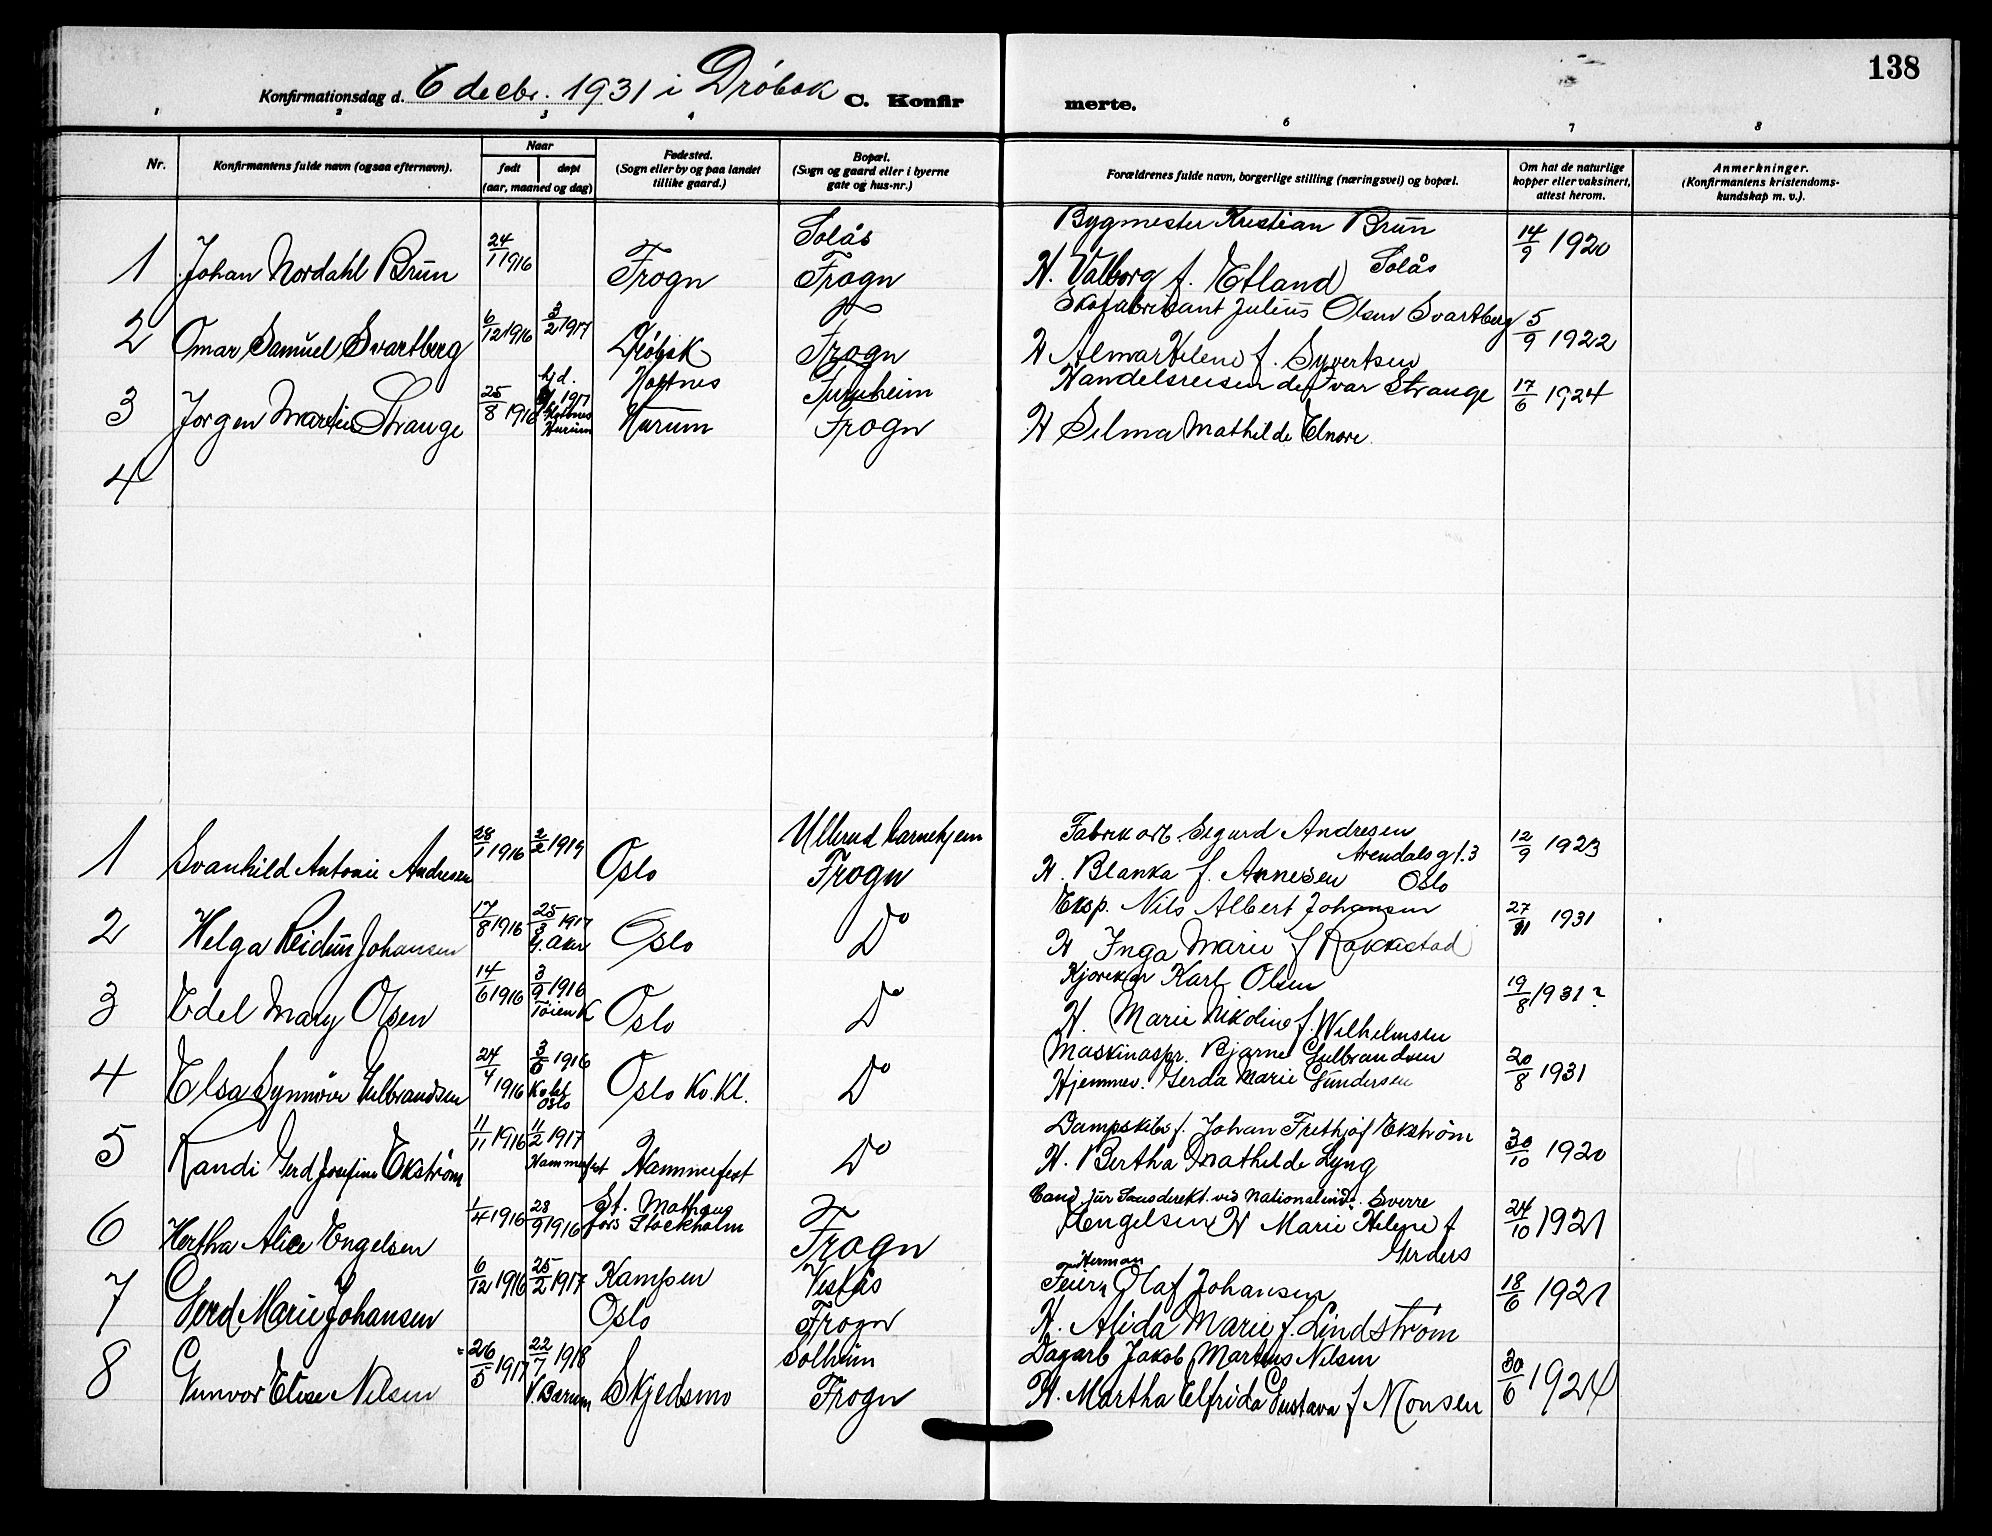 138
Konfirmationsdag d. 6 decbr. 1931 i Drøbak C. Konfirmerte.
1 2 3 4 6 7 8
Nr.
Konfirmantens fulde navn (ogsaa efternavn).
Naar
født døpt
(aar, maaned og dag)
Fødested.
(Sogn eller by og paa landet
tillike gaard.)
Bopæl.
(Sogn og gaard eller i byerne
gate og hus-nr.)
Forældrenes fulde navn, borgerlige stilling (næringsvei) og bopæl.
Om hat de naturlige
kopper eller vaksinert,
attest herom.
Anmerkninger.
(Konfirmantens kristendoms-
kundskap m. v.).
Solås Bygmester Kristian Brun
1 Johan Nordahl Brun 24/1 1916 Frogn Frogn H. Valborg f. Etland Solås 14/9 1920
Skofabrikant Julius Olsen Svartberg
2 Omar Samuel Svartberg 6/12 1916 3/2 1917 Drøbak Frogn H Alma Helene f. Syvertsen 5/9 1922
hjd. Hoftnes Furuheim Handelsreisende Ivar Strange
3 Jørgen Martin Strange 25/8 1916 1917 Hurum Hurum Frogn H Selma Mathilde Elnore 17/6 1924
4
Ullerud barnehjem Fabrik arb. Sigurd Andresen
1 Svanhild Antonie Andresen 28/1 1916 2/2 1919 Oslo Frogn H. Blanka f. Arnesen Arendalsgt. 3 Oslo 12/9 1923
Eksp. Nils Albert Johansen
2 Helga Reidun Johansen 17/8 1916 25/3 1917 G. Aker Oslo Do H Inga Marie f Rakkestad 27/11 1931
Kjørekar Karl Olsen
3 Edel Mary Olsen 14/6 1916 3/9 1916 Tøien K Oslo Do H. Marie Nikoline f. Wilhelmsen 19/8 1931?
Maskinaspr. Bjarne Gulbrandsen
4 Elsa Synnøve Gulbrandsen 24/4 1916 3/6 1916 Oslo Oslo Ko. Kl. Do Hjemmev. Gerda Marie Gundersen 20/8 1931
Dampskibsf. Johan Frethjof Ekstrøm
5 Randi Gerd Josefine Ekstrøm 11/11 1916 11/2 1917 Hammerfest Hammerfest Do H. Bertha Mathilde Lyng 30/10 1920
St. Matheus Cand. jur vid Sverre
6 Hertha Alice Engelsen 1/4 1916 23/9 1916 førs Stockholm Frogn Engelsen H Marie Helene f Gerders 24/10 1921
Herman
7 Gerd Marie Johansen 6/12 1916 25/2 1917 Kampen Vestås Feier Olaf Johansen 18/6 1921
Oslo Frogn H. Alida Marie f. Lindstrøm
Solheim Dagarb Jakob Martius Nilsen
8 Gunvor Elise Nilsen 26/5 1917 22/7 1918 V. Bærum Skjedsmo Frogn H. Martha Elfrida Gustava f Monsen 30/6 1924